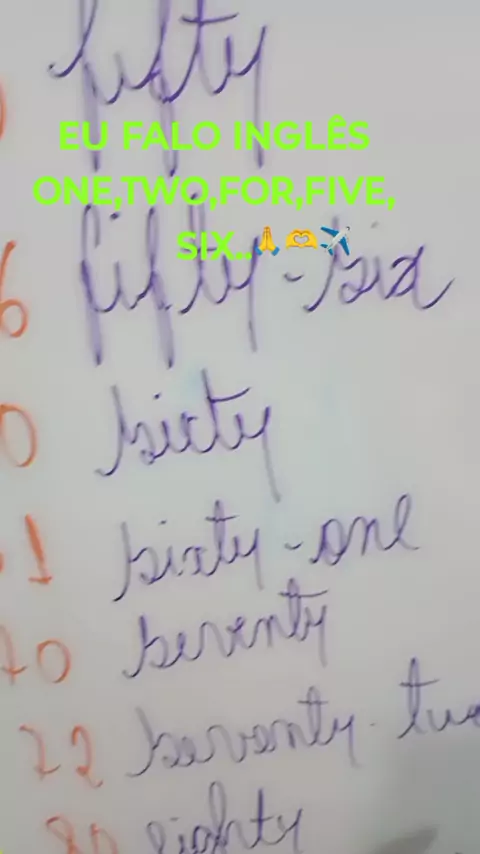 fifty
EU FALO INGLÊS
ONE,TWO,FOR,FIVE,
SIX..🙏🫶✈️
6 fifty-six
0 sixty
1 sixty-one
70 seventy
72 seventy-two
80 eighty